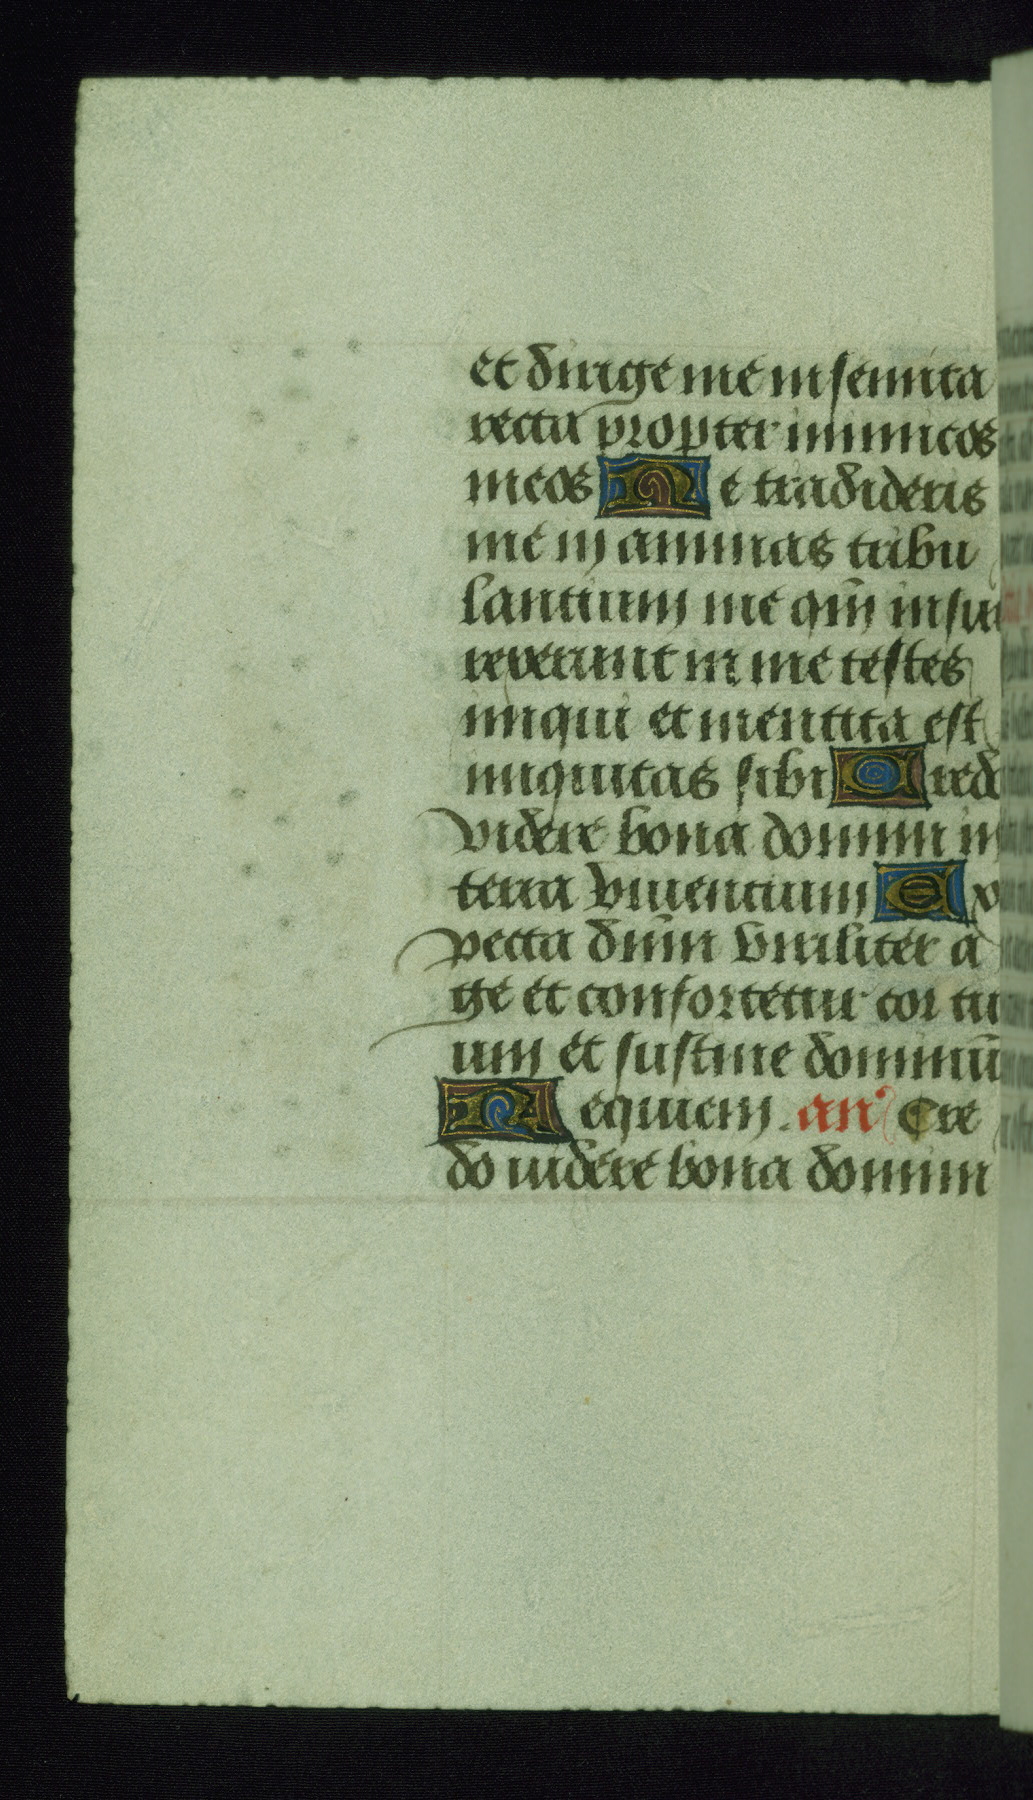 et dirige me in semita
recta propter inimicos
meos Ne tradideris
me in animas tribu
lantium me qm̄ insur
rexerunt in me testes
iniqui et mentita est
iniquitas sibi Credo
videre bona domini in
terra viventium Ex
pecta dn̄m viriliter a
ge et confortetur cor tu
um et sustine dominū
Requiem. an' Cre
do uidere bona domini